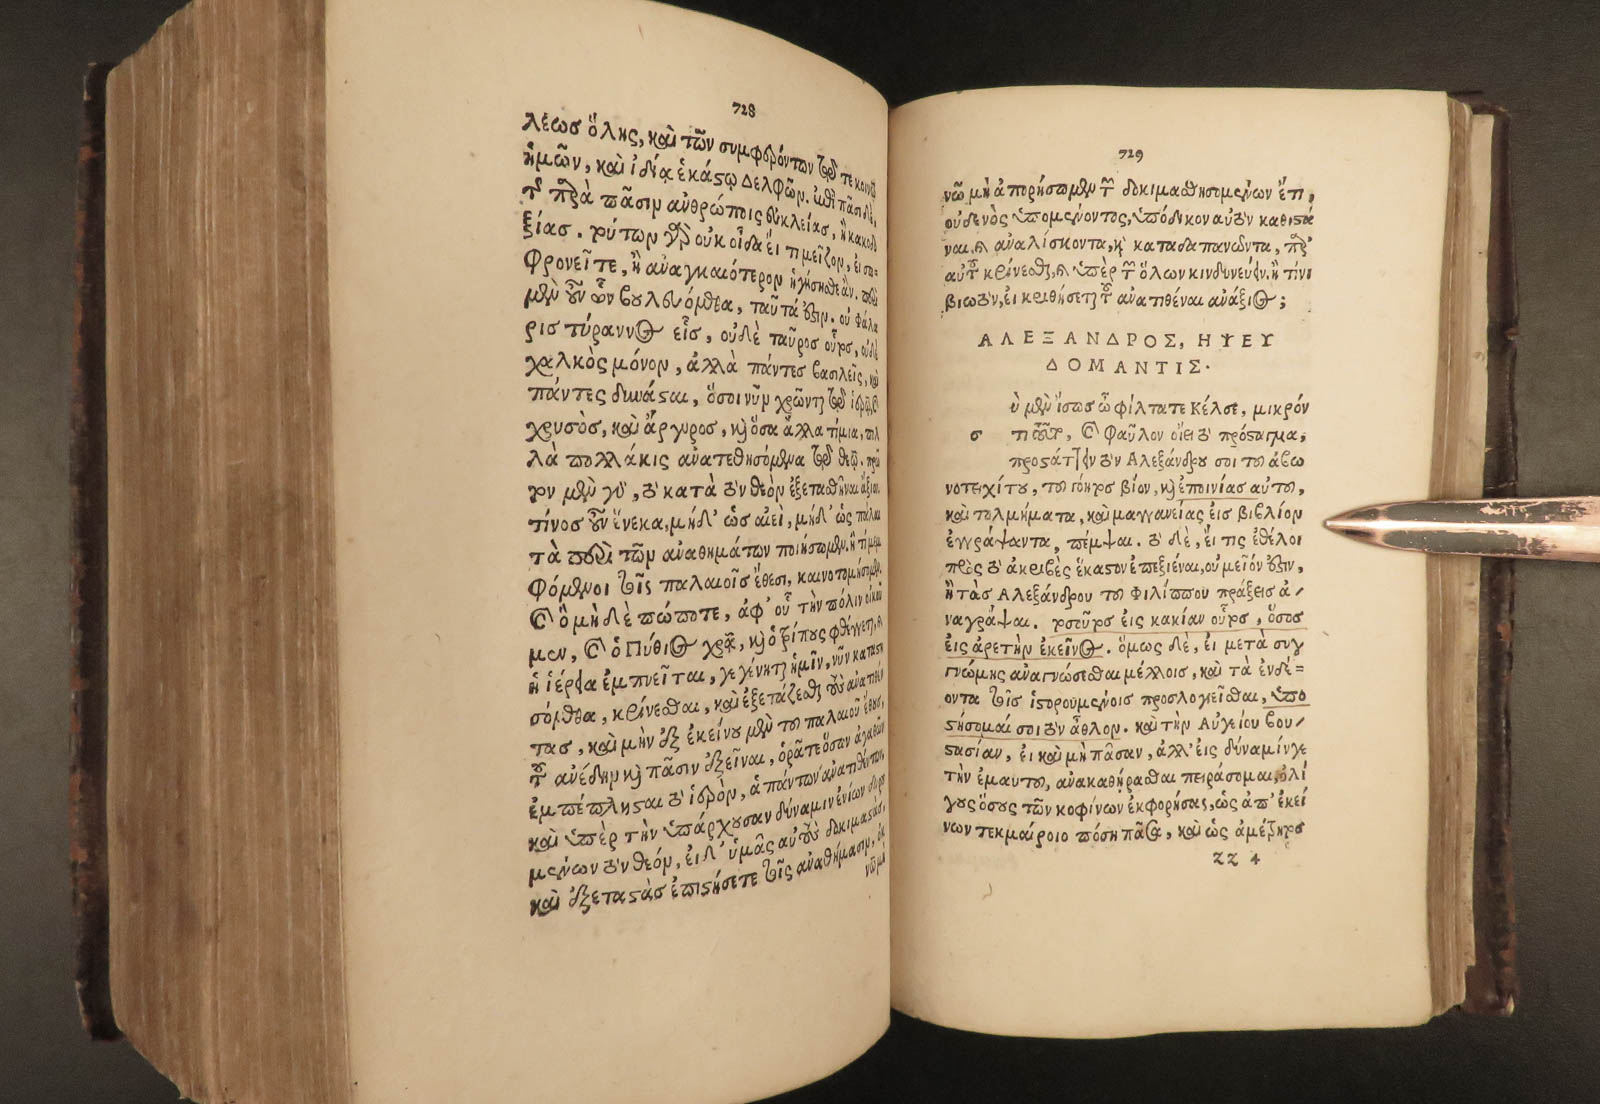 728
λέωσ ὅλης, καὶ τῶν συμφερόντων τῶν τε κοινῇ
ἡμῶν, καὶ ἰδίᾳ ἑκάστῳ Δελφῶν. ἐπὶ πᾶσι δὲ,
τῆς παρὰ πᾶσιν ἀνθρώποις εὐκλείασ, ἢ κακοδο
ξίασ. τούτων γὰρ οὐκ οἶδα εἴ τι μεῖζον, εἰ σω-
φρονεῖτε, ἢ ἀναγκαιότερον ἡγήσησθε ἄν. περὶ
μὲν οὖν ὧν βουλευόμεθα, ταῦτά ἐστιν. οὐ Φάλα
ρισ τύραννος εἷσ, οὐδὲ ταῦροσ οὗτος, οὐδὲ
χαλκὸς μόνον, ἀλλὰ πάντεσ βασιλεῖς, καὶ
πάντες δυνάσται, ὅσοι νῦν χρῶνται τῷ ἱερῷ, καὶ
χρυσὸς, καὶ ἄργυροσ, καὶ ὅσα ἄλλα τίμια, πολ
λὰ πολλάκις ἀνατεθησόμενα τῷ θεῷ. πρῶ
τον μὲν γὰρ, τὸ κατὰ τὸν θεὸν ἐξετασθῆναι ἄξιον.
τίνοσ οὖν ἕνεκα, μήδ' ὡσ αἰεὶ, μήδ' ὡς πάλαι
τὰ περὶ τῶν ἀναθημάτων ποιήσωμεν. ἢ τί μεμ
φόμενοι τοῖς παλαιοῖσ ἔθεσι, καινοτομήσωμεν.
καὶ ὃ μηδὲ πώποτε, ἀφ' οὗ τὴν πόλιν οἰκοῦ
μεν, καὶ ὁ Πύθιος χρᾷ, καὶ ὁ τρίπους φθέγγεται, καὶ
ἡ ἱέρεια ἐμπνεῖται, γεγένηται ἡμῖν, νῦν καταστη
σόμεθα, κρίνεσθαι, καὶ ἐξετάζεσθαι τοὺς ἀνατιθέν
τασ, καὶ μὴν ἐξ ἐκείνου μὲν τοῦ παλαιοῦ ἔθουσ,
τοῦ ἀνέδην καὶ πᾶσιν ἐξεῖναι, ὁρᾶτε ὅσων ἀγαθῶν
ἐμπέπλησται τὸ ἱερὸν, ἁπάντων ἀνατιθέντων,
καὶ ὑπὲρ τὴν ὑπάρχουσαν δύναμιν ἐνίων δωρου
μένων τὸν θεόν, εἰ δ' ὑμᾶς αὐτοὺς δοκιμαστὰς,
καὶ ἐξεταστὰσ ἐπιστήσετε τοῖς ἀναθήμασιν, ὀκ
νῶ μὴ
729
νῶ μὴ ἀπορήσωμεν τῶν δοκιμασθησομένων ἔτι,
οὐδενὸς ὑπομένοντος, ὑπόδικον αὐτὸν καθιστά
ναι, καὶ ἀναλίσκοντα, καὶ καταδαπανῶντα, παρ'
αὐτοῦ κρίνεσθαι, καὶ ὑπὲρ τῶν ὅλων κινδυνεύειν. ἢ τίνι
βιωτὸν, εἰ κριθήσεται τοῦ ἀνατιθέναι ἀνάξιος;
ΑΛΕΞΑΝΔΡΟΣ, Η ΨΕΥ
ΔΟΜΑΝΤΙΣ.
ὺ μὲν ἴσωσ ὦ φίλτατε Κέλσε, μικρόν
σ τι τοῦτο, καὶ φαῦλον οἴει τὸ πρόσταγμα,
προστάττειν τὸν Ἀλεξάνδρου σοι τοῦ ἀβω
νοτειχίτου, τοῦ γόητος βίον, καὶ ἐποινίασ αὐτοῦ,
καὶ τολμήματα, καὶ μαγγανείας εἰσ βιβλίον
ἐγγράψαντα, πέμψαι. τὸ δὲ, εἴ τις ἐθέλοι
πρὸς τὸ ἀκριβὲς ἕκαστον ἐπεξιέναι, οὐ μεῖόν ἐστιν,
ἢ τὰσ Ἀλεξάνδρου τοῦ Φιλίππου πράξεισ ἀ-
ναγράψαι. τοσοῦτος εἰς κακίαν οὗτος, ὅσοσ
εἰς ἀρετὴν ἐκεῖνος. ὅμως δὲ, εἰ μετὰ συγ
γνώμης ἀναγνώσεσθαι μέλλοισ, καὶ τὰ ἐνδέ=
οντα τοῖς ἱστορουμένοις προσλογιεῖσθαι, ὑπο
στήσομαί σοι τὸν ἆθλον. καὶ τὴν Αὐγείου βου-
στασίαν, εἰ καὶ μὴ πᾶσαν, ἀλλ' εἰς δύναμίν γε
τὴν ἐμαυτοῦ, ἀνακαθήρασθαι πειράσομαι, ὀλί
γους ὅσους τῶν κοφίνων ἐκφορήσας, ὡς ἀπ' ἐκεί
νων τεκμαίροιο πόση πᾶσα, καὶ ὡς ἀμέτρητος
ZZ 4